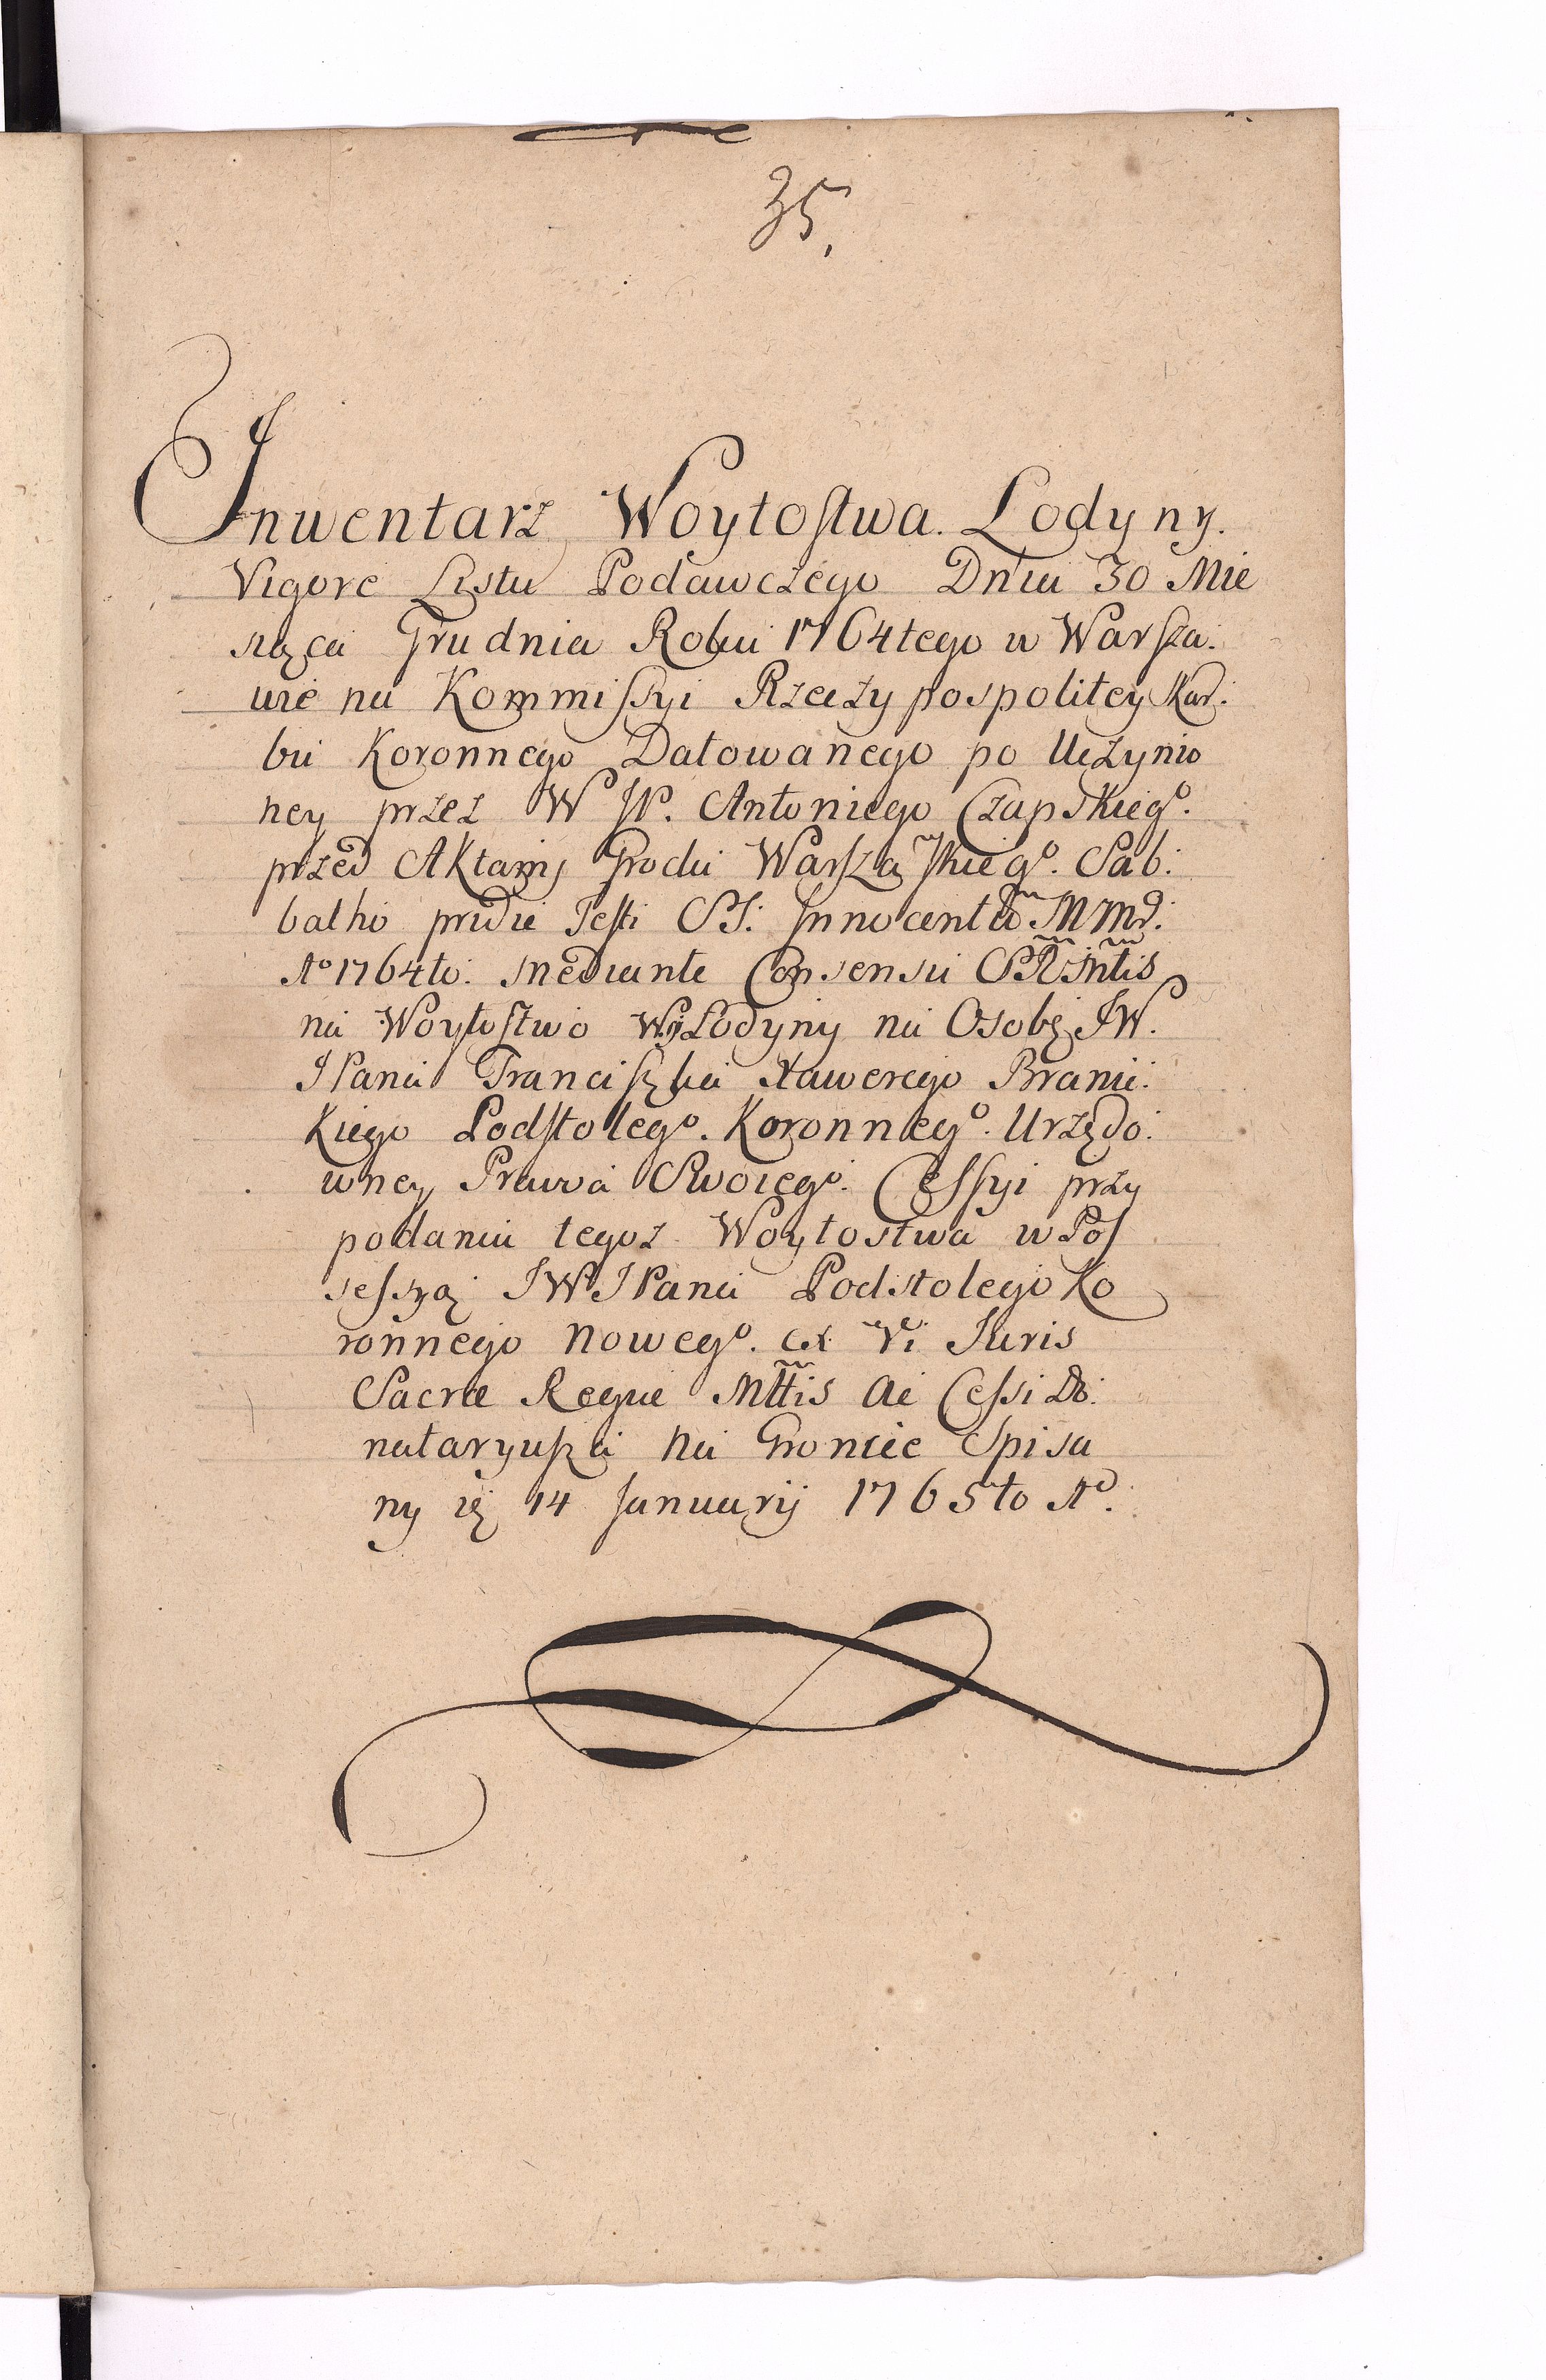 35.
Inwentarz Woytoſtwa. Lodyny.
Vigore Listu Podawczego Dnia 30 Mie
siąca Grudnia Roku 1764tego w Warſza:
wie na Kommiſſyi Rzeczypospolitey Skar:
bu Koronnego Datowanego po Uczynio
ney przez W JP. Antoniego Czapskiegº.
przed Aktamj Grodu Warſzaẃſkiegº. Sab:
batho pridie Feſti SS: Innocentũ MMr̃:
Aº 1764to. mediante Consensu S̃R̃Mtis
na Woytoſtwo Wſi Lodyny na Osobę JW.
JPana Franciſzka Xawerego Branic:
Kiego Podſtolegº. Koronnegº. Urzędo:
wney Prawa Swoiegº. Ceſſyi przy
podaniu tegoz Woytostwa w Poſ
seſsyą JWJPana Podstolego Ko
ronnego Nowegº. ex Vi Iuris
Sacræ Regiæ Mttis ac Ceſsi Do:
nataryuſza na Groncie Spisa
ny ię 14 Januarij 1765to Aº.